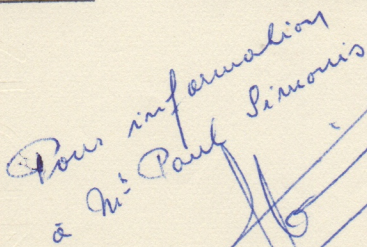 Pour information
à Mr Paul Simonis